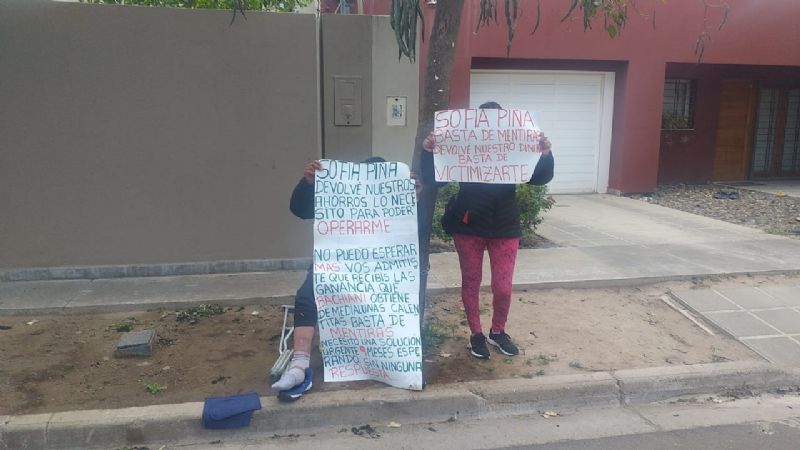 SOFIA PIÑA
DEVOLVÉ NUESTROS
AHORROS LO NECE
SITO PARA PODER
OPERARME
NO PUEDO ESPERAR
MAS VOS ADMITIS
TE QUE RECIBIS LAS
GANANCIA QUE
BACHIANI OBTIENE
DE MEDIALUNAS CALEN
TITAS BASTA DE
MENTIRAS
NECESITO UNA SOLUCION
URGENTE 9 MESES ESPE
RANDO SIN NINGUNA
RESPUESTA
SOFIA PIÑA
BASTA DE MENTIRAS
DEVOLVE NUESTRO DINE
BASTA DE
VICTIMIZARTE